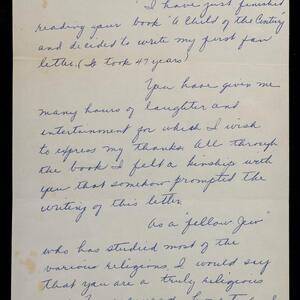 I have just finished
reading your book "A Child of the Century"
and decided to write my first fan
letter. (It took 47 years)
You have given me
many hours of laughter and
entertainment for which I wish
to express my thanks. All through
the book I felt a kinship with
you that somehow prompted the
writing of this letter.
As a "fellow Jew"
who has studied most of the
various religions, I would say
that you are a truly religious